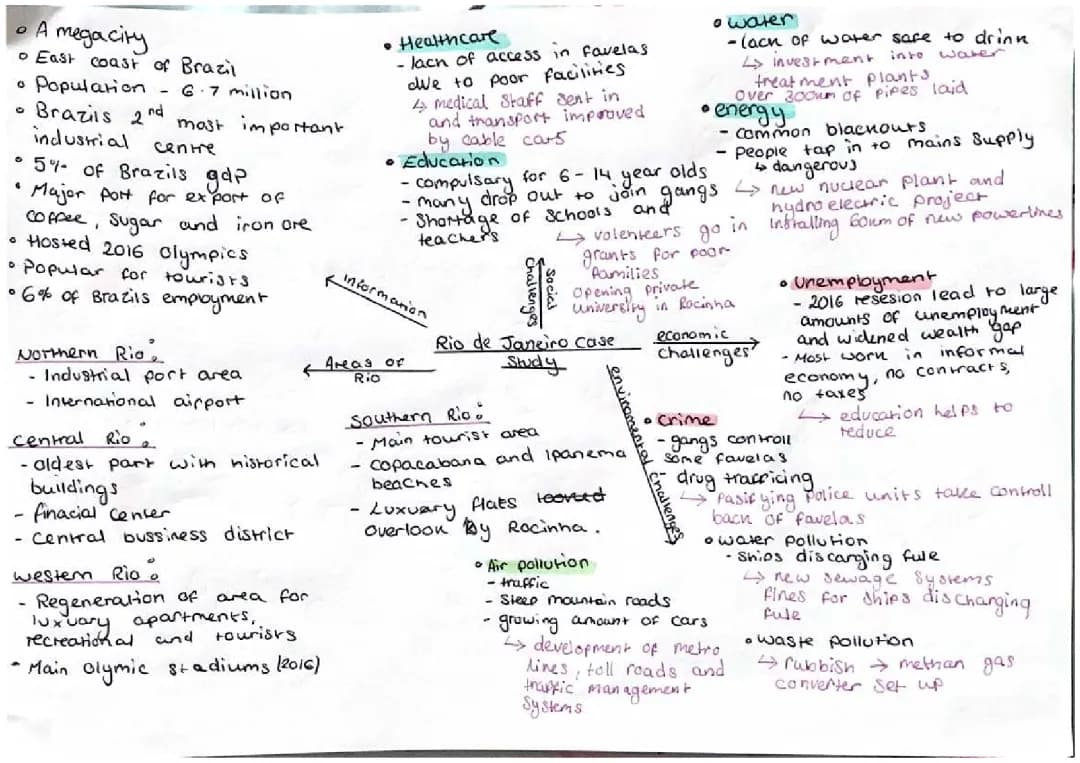 • A megacity
• East coast of Brazil
• Population - 6.7 million
• Brazils 2nd most important
industrial centre
• 5% of Brazils gdp
• Major port for export of
coffee, sugar and iron ore
• Hosted 2016 Olympics
• Popular for tourists
• 6% of Brazils employment
Information
• Healthcare
- lack of access in favelas
due to poor facilities
↳ medical staff sent in
and transport improved
by cable cars
• Education
- compulsary for 6-14 year olds
- many drop out to join gangs
- Shortage of schools and
teachers
↳ volenteers go in
grants for poor
families
Opening private
university in Rocinha
Social
Challenges
• water
- lack of water safe to drink
↳ investment into water
treatment plants
over 300km of pipes laid
• energy
- common blackouts
- People tap in to mains supply
↳ dangerous
↳ new nuclear plant and
hydroelectric project
Installing 60km of new powerlines
Rio de Janeiro case
Study
economic
challenges
• Unemployment
- 2016 resesion lead to large
amounts of unemployment
and widened wealth gap
- Most work in informal
economy, no contracts,
no taxes
↳ education helps to
reduce
• Crime
- gangs controll
some favelas
- drug trafficing
↳ Pasifying Police units take controll
back of favelas
Areas of
Rio
Northern Rio:
- Industrial port area
- International airport
Central Rio:
- oldest part with historical
buildings
- finacial center
- Central bussiness district
Western Rio:
- Regeneration of area for
luxuary apartments,
recreational and tourists
- Main olymic stadiums (2016)
Southern Rio:
- Main tourist area
- copacabana and Ipanema
beaches
- Luxuary flats
overlook by Rocinha.
enviromental challenges
• Air pollution
- traffic
- Steep mountain roads
- growing amount of cars
↳ development of metro
lines, toll roads and
traffic management
systems
• water pollution
- Ships discarging fule
↳ new sewage systems
fines for ships discharging
fule
• waste pollution
↳ rubbish → methan gas
converter set up